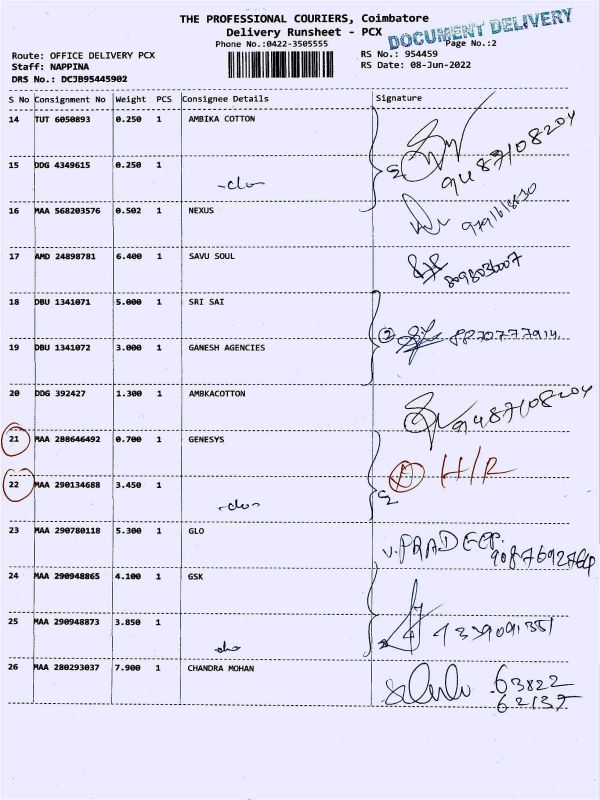 THE PROFESSIONAL COURIERS, Coimbatore
Delivery Runsheet - PCX
DOCUMENT DELIVERY
Phone No.:0422-3505555
Page No.:2
Route: OFFICE DELIVERY PCX
RS No.: 954459
Staff: NAPPINA
RS Date: 08-Jun-2022
DRS No.: DCJB95445902
S No Consignment No Weight PCS Consignee Details Signature
14 TUT 6050893 0.250 1 AMBIKA COTTON
9487108204
15 DDG 4349615 0.250 1 -do-
16 MAA 568203576 0.502 1 NEXUS
17 AMD 24898781 6.400 1 SAVU SOUL
8098036007
18 DBU 1341071 5.000 1 SRI SAI
2 8870777914
19 DBU 1341072 3.000 1 GANESH AGENCIES
20 DDG 392427 1.300 1 AMBKACOTTON
9487108204
21 MAA 288646492 0.700 1 GENESYS
H/R
22 MAA 290134688 3.450 1 -do-
23 MAA 290780118 5.300 1 GLO
V. PRADEEP.
9087692764
24 MAA 290948865 4.100 1 GSK
25 MAA 290948873 3.850 1 -do-
26 MAA 280293037 7.900 1 CHANDRA MOHAN
63822
62137